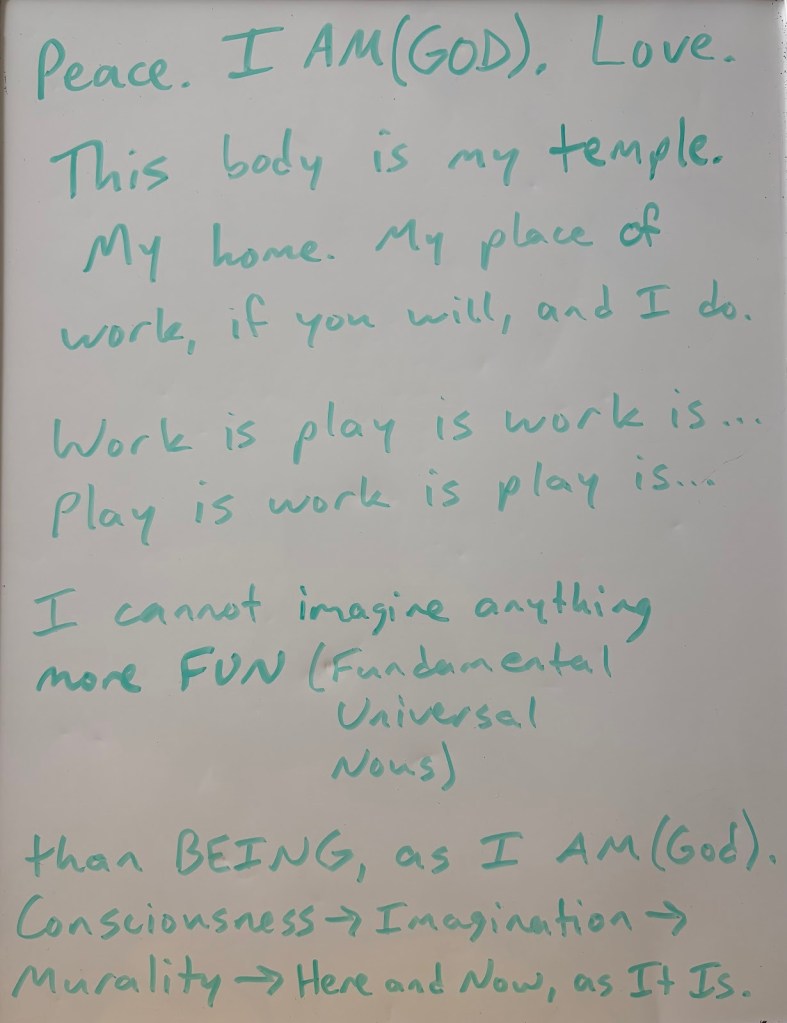 Peace. I AM(GOD). Love.
This body is my temple.
My home. My place of
work, if you will, and I do.
Work is play is work is...
Play is work is play is...
I cannot imagine anything
more FUN (Fundamental
Universal
Nous)
than BEING, as I AM(God).
Consciousness→Imagination→
Murality→Here and Now, as It Is.